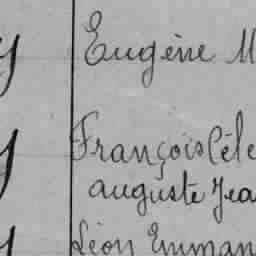 y Eugène M
y François Céle
auguste Jea
y Léon Emman